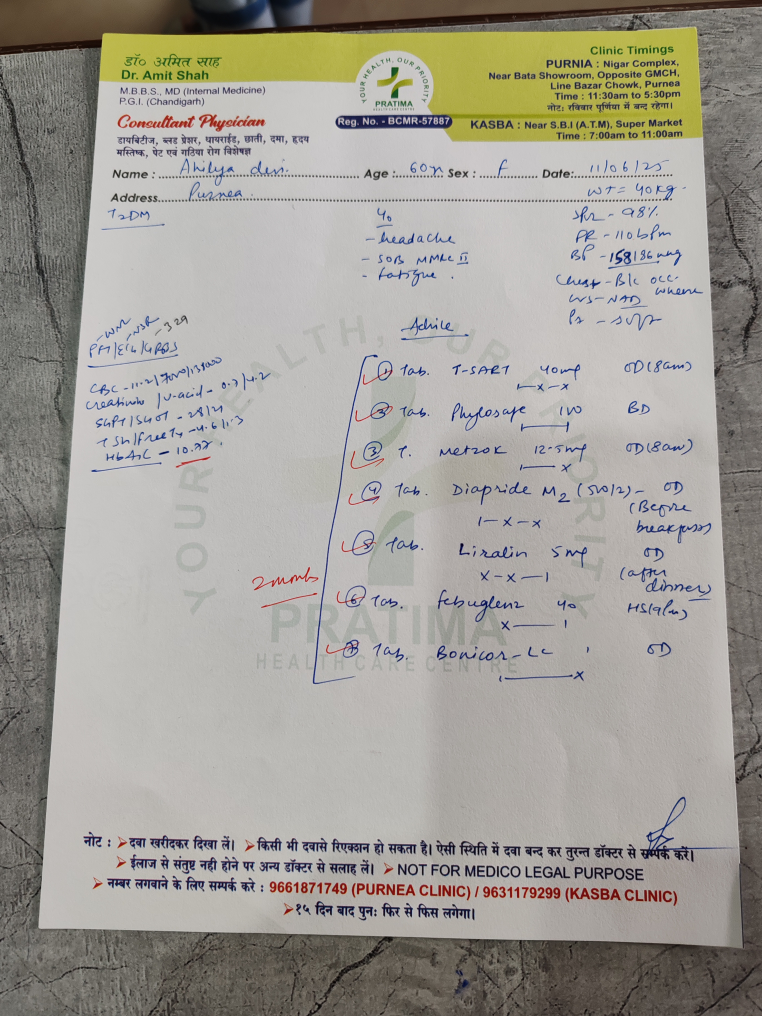 डॉ० अमित साह
Dr. Amit Shah
M.B.B.S., MD (Internal Medicine)
P.G.I. (Chandigarh)
Consultant Physician
डायबिटीज, ब्लड प्रेशर, थायराईड, छाती, दमा, हृदय
मस्तिष्क, पेट एवं गठिया रोग विशेषज्ञ
YOUR HEALTH, OUR PRIORITY
PRATIMA
HEALTH CARE CENTRE
Reg. No. - BCMR-57887
Clinic Timings
PURNIA : Nigar Complex,
Near Bata Showroom, Opposite GMCH,
Line Bazar Chowk, Purnea
Time : 11:30am to 5:30pm
नोट: रविवार पूर्णिया में बन्द रहेगा।
KASBA : Near S.B.I (A.T.M), Super Market
Time : 7:00am to 11:00am
Name : Ahilya devi Age : 60 Sex : F Date: 11/06/25
Address Purnea
WT = 40kg
T2DM
- headache
- SOB MMRC II
- fatigue
98%
PR - 110 bpm
BP - 158/86 mmHg
Chest - B/L occ
NAD
- 329
CBC - 11.2/7000/
Creatinine / U-acid - 0.7/4.2
SGPT/SGOT - 28/21
TSH/Free T4 - 4.6/1.3
HbA1C - 10.77
Advice
1 Tab. T-SART 40mg OD (8am)
1-x-x
Tab. Phylosafe 100 BD
3 T. Metzok 12.5mg OD (8am)
4 Tab. Diapride M2 (500/2) - OD
1-x-x (Before
breakfast)
5 Tab. Liralin 5mg OD
x-x-1 (after
dinner)
2 months
6 Tab. Febuglenz 40 HS (9pm)
7 Tab. Bonicor-LC OD
YOUR HEALTH, OUR PRIORITY
PRATIMA
HEALTH CARE CENTRE
नोट : ➤दवा खरीदकर दिखा लें। ➤किसी भी दवासे रिएक्शन हो सकता है। ऐसी स्थिति में दवा बन्द कर तुरन्त डॉक्टर से सम्पर्क करें।
➤ईलाज से संतुष्ट नही होने पर अन्य डॉक्टर से सलाह लें। ➤NOT FOR MEDICO LEGAL PURPOSE
➤नम्बर लगवाने के लिए सम्पर्क करे : 9661871749 (PURNEA CLINIC) / 9631179299 (KASBA CLINIC)
➤१५ दिन बाद पुनः फिर से फिस लगेगा।